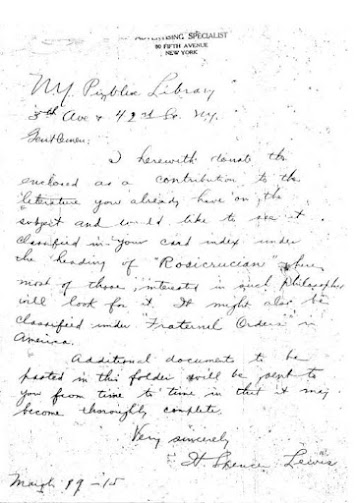 ADVERTISING SPECIALIST
80 FIFTH AVENUE
NEW YORK
N.Y. Public Library
5th Ave & 42nd St. N.Y.
Gentlemen:
I herewith donate the
enclosed as a contribution to the
literature you already have on the
subject and would like to see it
classified in your card index under
the heading of "Rosicrucian" where
most of those interested in such Philosophy
will look for it. It might also be
classified under "Fraternal Orders" in
America.
Additional documents to be
pasted in this folder will be sent to
you from time to time in that it may
become thoroughly complete.
Very sincerely
H. Spencer Lewis
March 19-15